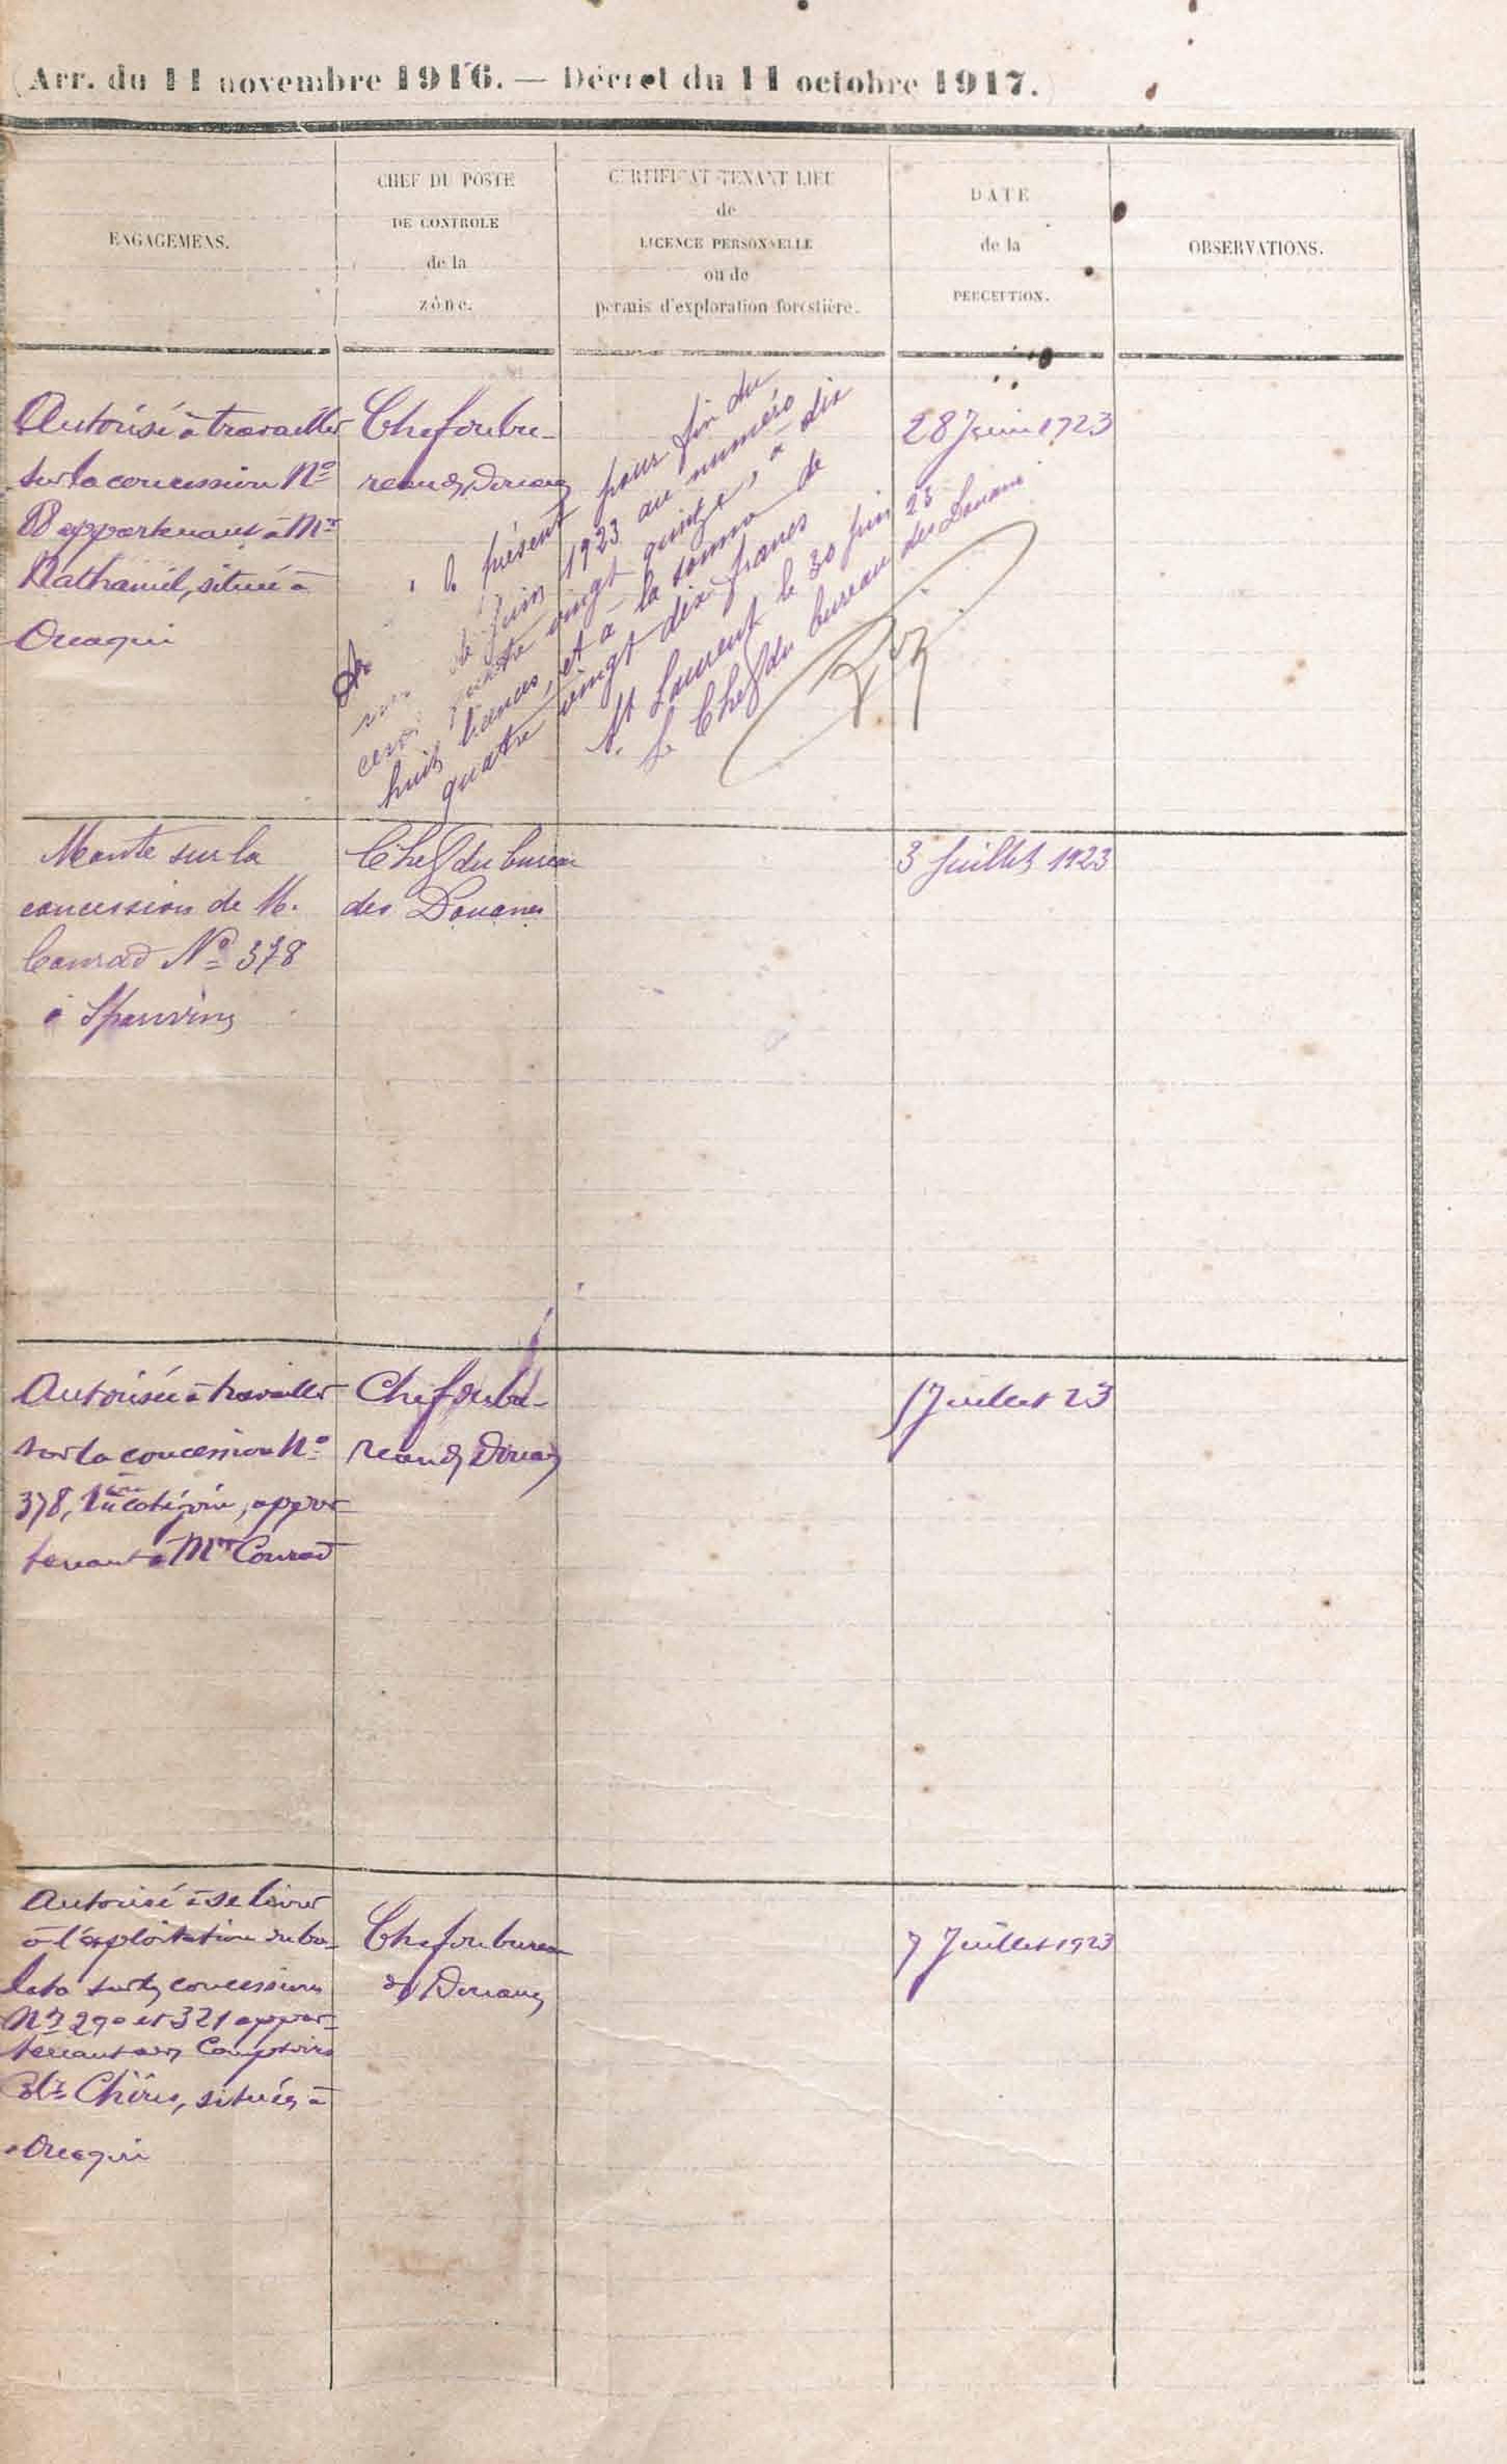 (Arr. du 11 novembre 1916. — Décret du 11 octobre 1917.)
ENGAGEMENS.
CHEF DU POSTE
DE CONTROLE
de la
zône.
CERTIFICAT TENANT LIEU
de
LICENCE PERSONNELLE
ou de
permis d'exploration forestière.
DATE
de la
PERCEPTION.
OBSERVATIONS.
Autorisé à travailler
sur la concession No
88 appartenant à Mr
Nathaniel, située à
Ouaqui
Chef du bu-
reau des Douanes
28 Juin 1923
le présent pour fin du
de juin 1923 au numéro
quatre vingt quinze, à dix
huit licences, et à la somme de
quatre vingt dix francs
St Laurent le 30 juin 23
Le Chef du bureau des Douanes
Monte sur la
concession de M.
Conrad No 378
à Sparwine
Chef du bureau
des Douanes
3 Juillet 1923
Autorisée à travailler
sur la concession No
378, 1ère catégorie, appar-
tenant à Mr Conrad
Chef du bu-
reau des Douanes
5 Juillet 23
Autorisé à se livrer
à l'exploitation du ba-
lata sur les concessions
Nos 290 et 321 appar-
tenant aux Comptoirs
Chiris, situées à
Ouaqui
Chef du bureau
des Douanes
7 Juillet 1923